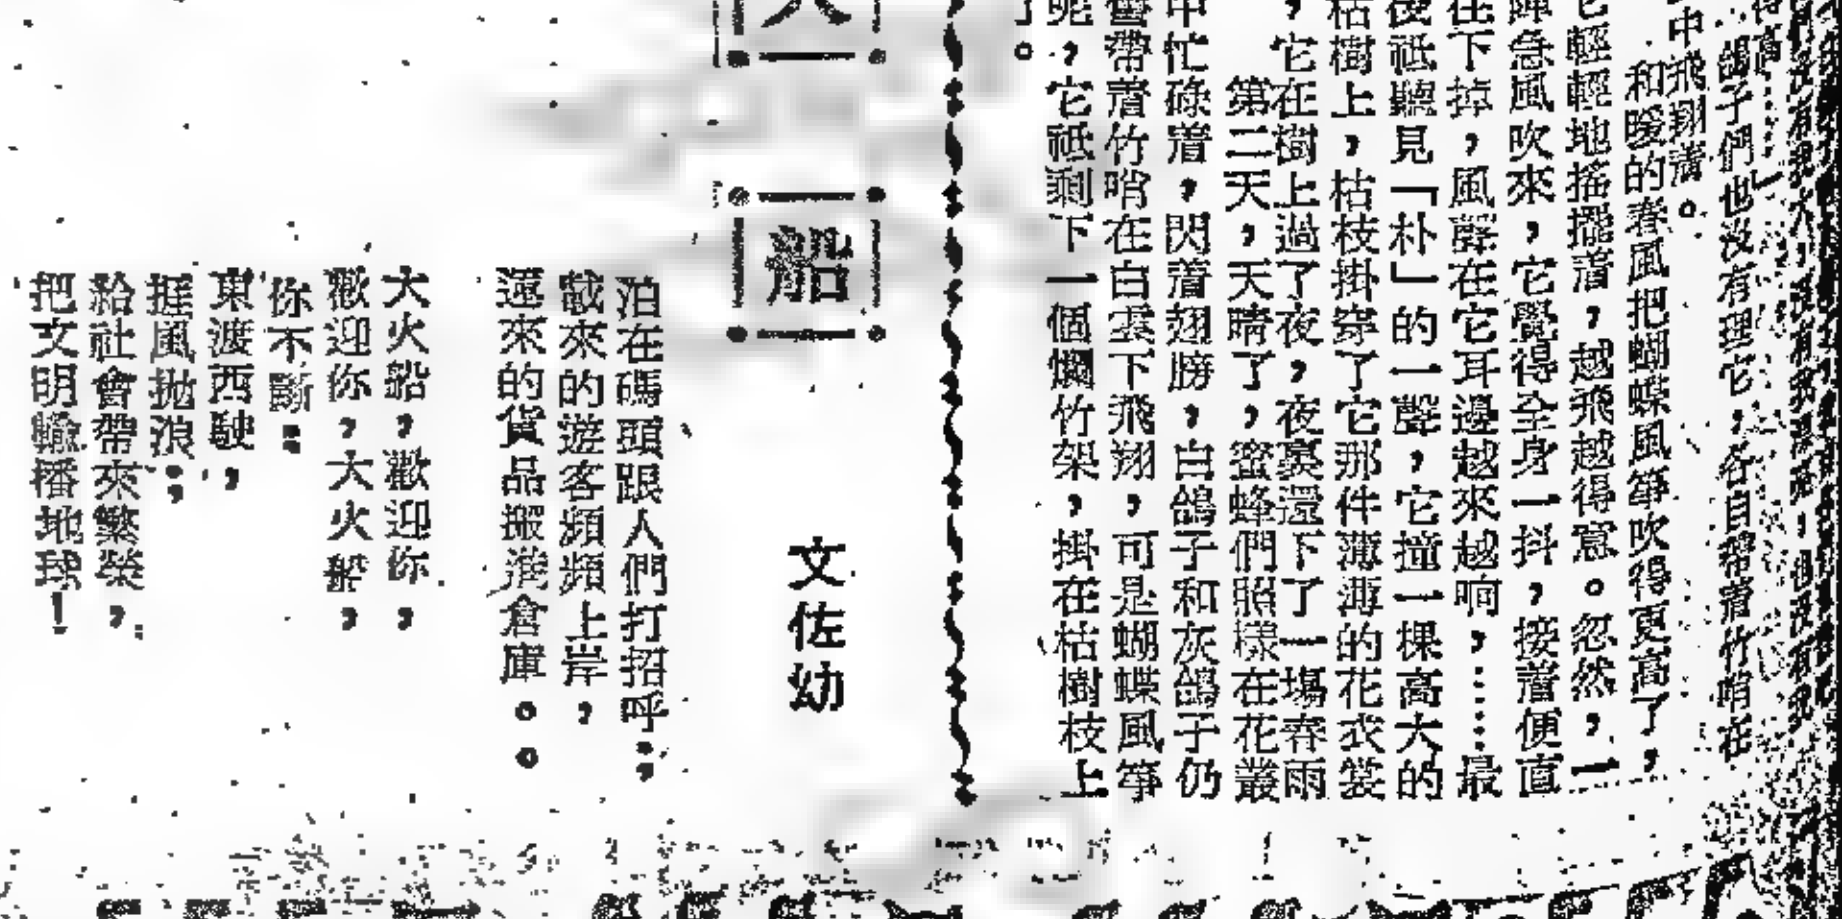 鴿子們也沒有理它，各自帶着竹哨在
中飛翔着。
和暖的春風把蝴蝶風箏吹得更高了，
它輕輕地搖擺着，越飛越得意。忽然，一
陣急風吹來，它覺得全身一抖，接着便直
往下掉，風聲在它耳邊越來越响，……最
後祗聽見「朴」的一聲，它撞一棵高大的
枯樹上，枯枝掛穿了它那件薄薄的花衣裳
，它在樹上過了夜，夜裏還下了一場春雨
第二天，天晴了，蜜蜂們照樣在花叢
中忙碌着，閃着翅膀，白鴿子和灰鴿子仍
舊帶着竹哨在白雲下飛翔，可是蝴蝶風箏
呢，它祗剩下一個爛竹架，掛在枯樹枝上
了。
火船
文佐幼
泊在碼頭跟人們打招呼；
載來的遊客頻頻上岸，
還來的貨品搬進倉庫。。
大火船，歡迎你，
歡迎你，大火船，
你不斷：
東渡西駛，
捱風拋浪；
給社會帶來繁榮，
把文明輸播地球！